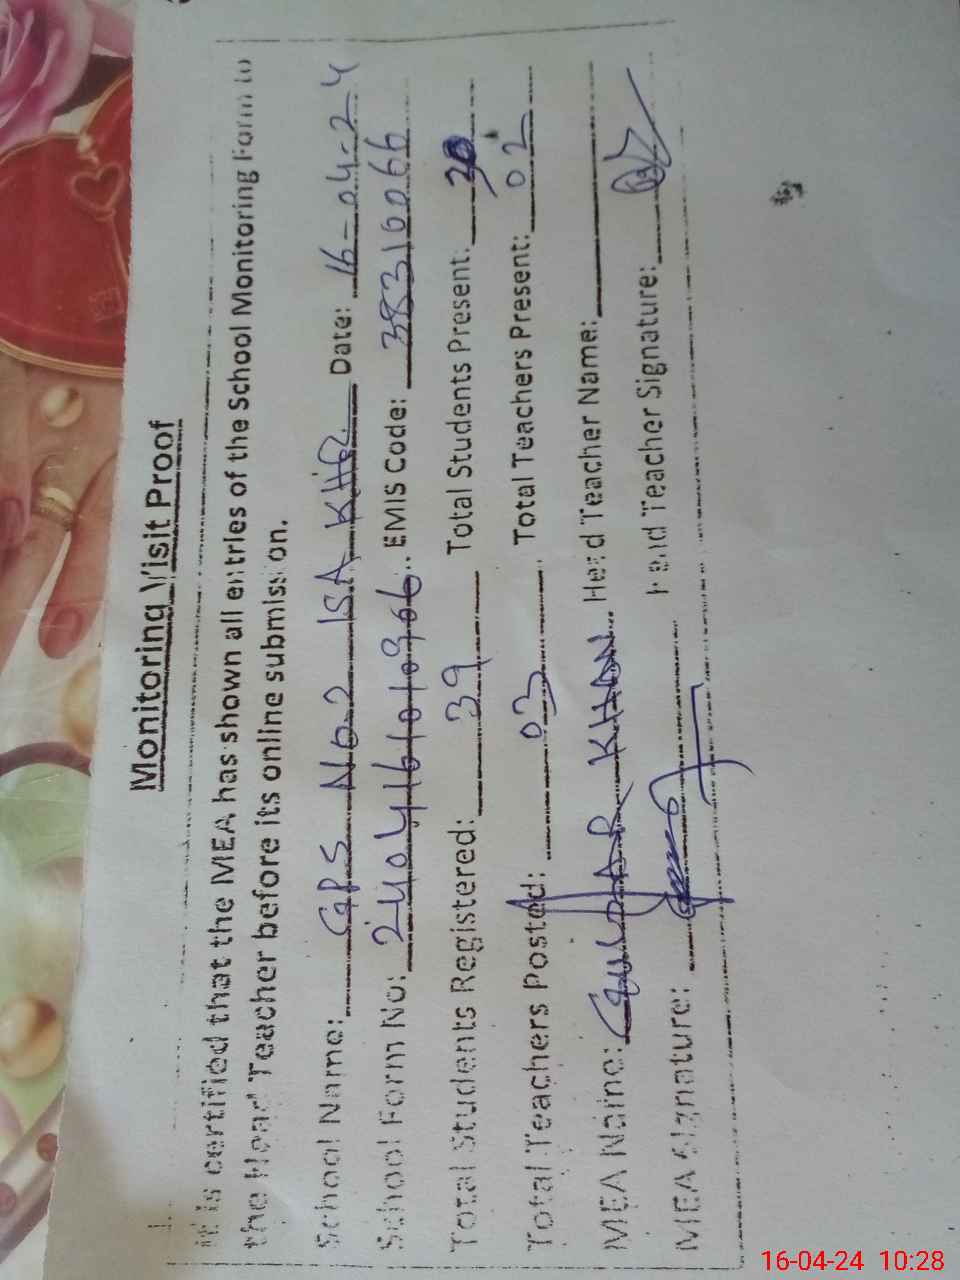 Monitoring Visit Proof
It is certified that the MEA has shown all entries of the School Monitoring Form to
the Head Teacher before its online submission.
School Name: GPS No2 ISA KHEL Date: 16-04-24
School Form No: EMIS Code: 38310066
Total Students Registered: 39 Total Students Present: 30
Total Teachers Posted: 03 Total Teachers Present: 02
MEA Name: KHAN Head Teacher Name:
MEA Signature: Head Teacher Signature:
16-04-24 10:28